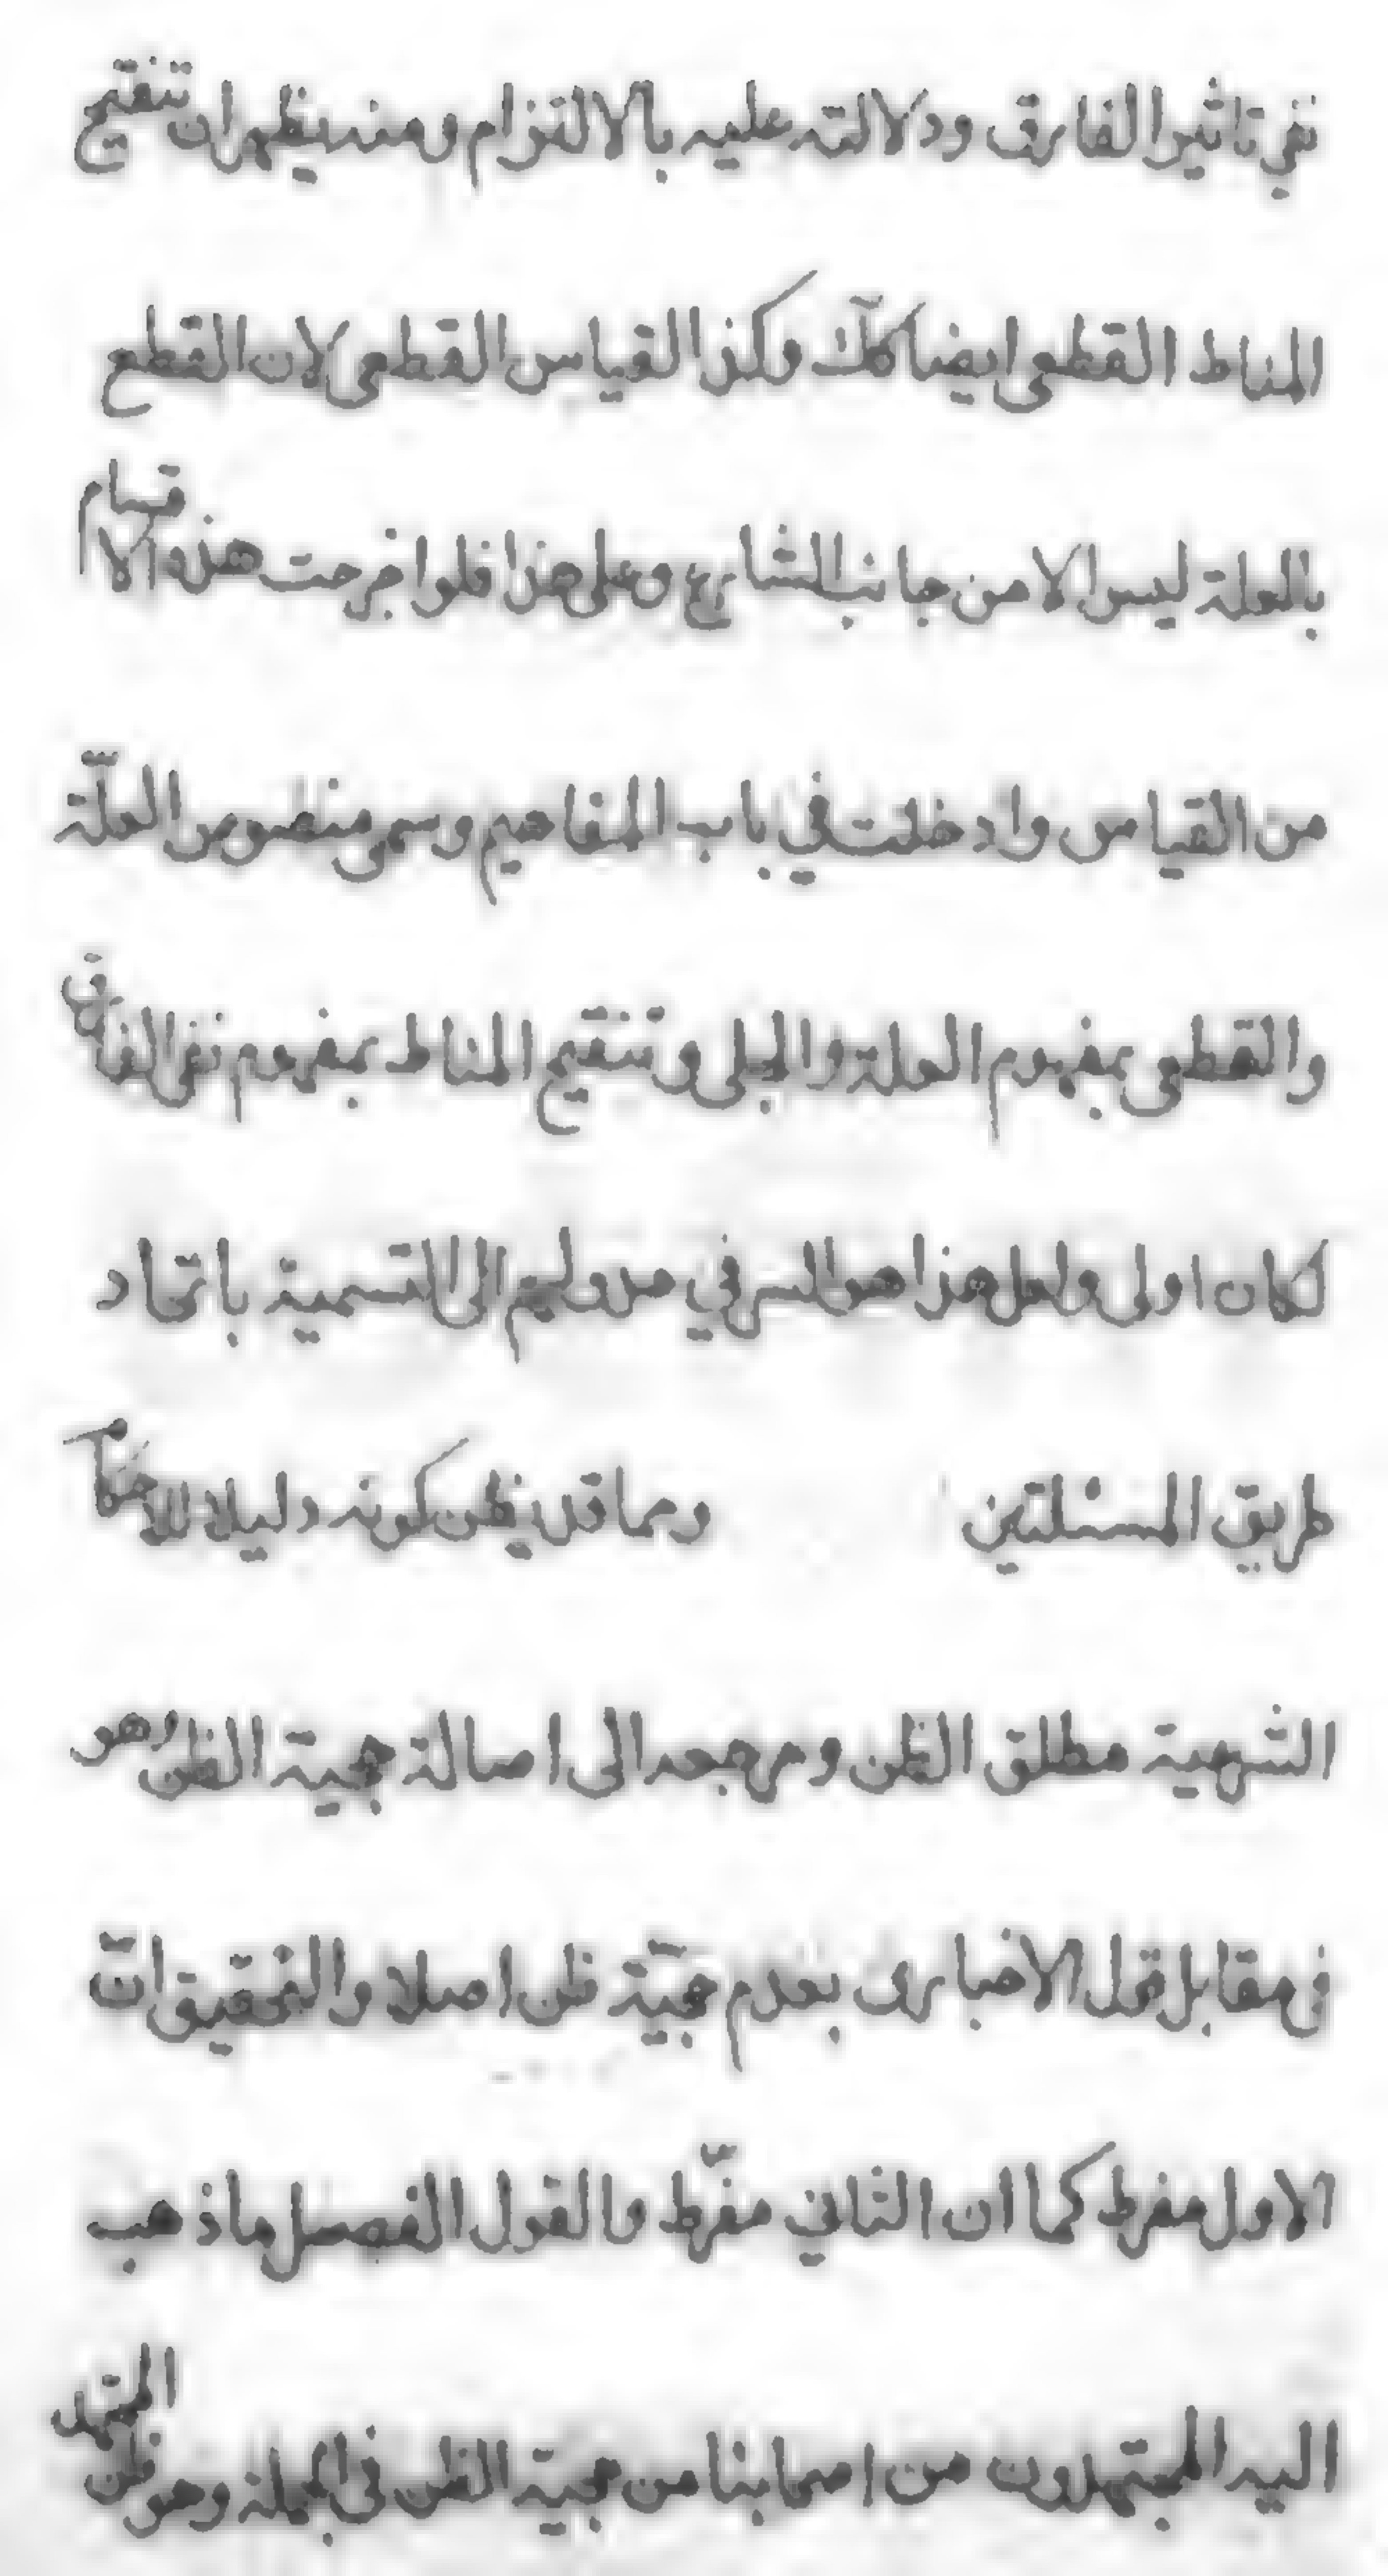 نفي تاثير الفارق ودلالته عليه بالالتزام ومنه يظهر ان تنقيح
المناط القطعى ايضا كآك وكذا القياس القطعى لان القطع
بالعلة ليس الا من جانب الشارع وعلى هذا فلو اخرجت هذه الاقسام
من القياس وادخلت في باب المفاهيم وسمى منصوص العلّة
والقطعى بمفهوم العلة والجلى وتنقيح المناط بمفهوم نفى الفارق
لكان اولى ولعل هذا هو السر في عدولهم الى التسمية باتحاد
طريق المسئلتين ومما قد يظن كونه دليلا للاحكام
الشرعية مطلق الظن ومرجعه الى اصالة حجية الظن وهو
في مقابل قول الاخبارى بعدم حجيّة ظن اصلا والتحقيق انّ
الاول مفرط كما ان الثاني مفرّط والقول الفصل ما ذهب
اليه المجتهدون من اصحابنا من حجية الظن فى الجملة وهو ظن المجتهد